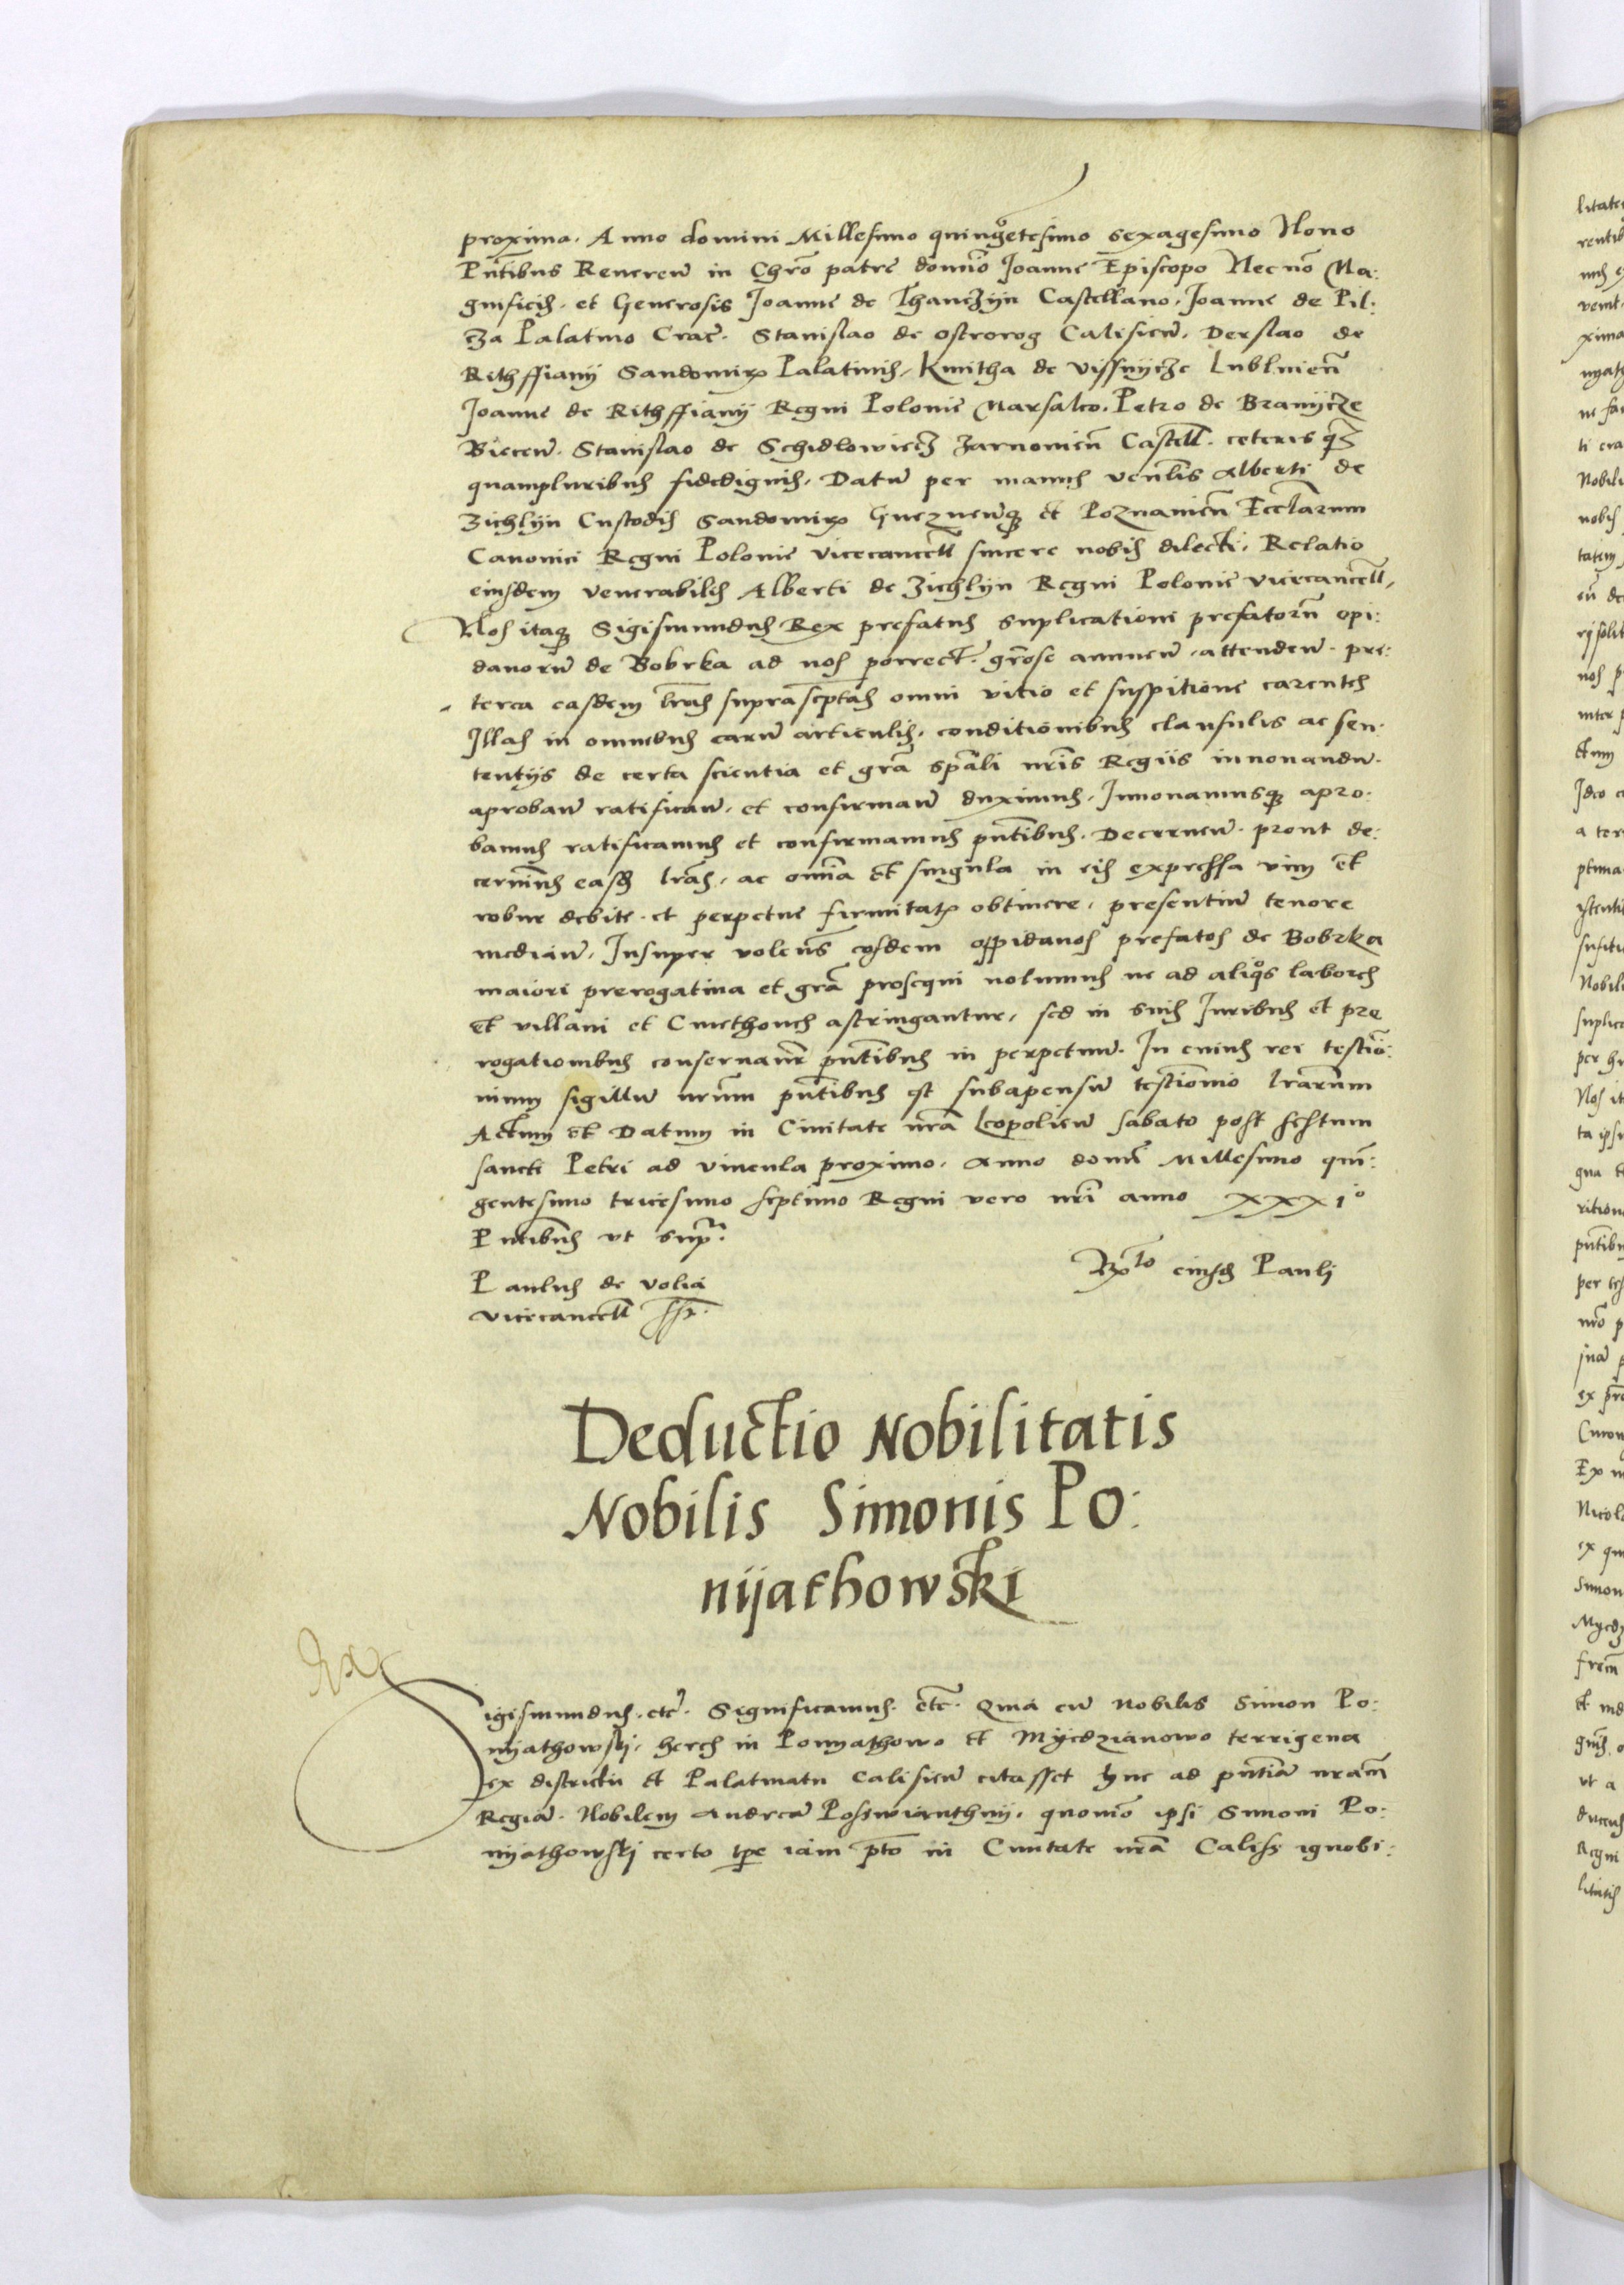 proxima. Anno domini Millesimo quingetesimo sexagesimo Nono
Pñtibus Reneren in Chro patre domio Joanne Episcopo Necno Ma:
gnificis. et Generosis Joanne de Thanczyn Castellano. Joanne de Pil:
cza Palatino Crac. Stanislao de ostrorog Calisien. Derslao de
Rithffiany Sandomir Palatinis. Kmitha de vissnycze Lublnien
Joanne de Rithffiany Regni Polonie Marsalco. Petro de Branycze
Biecen. Stanislao de Schidlowiecz Zarnonien Castell. ceteris qz
quampluribus fidedignis. Datum per manus venlis Alberti de
Zichlyn Custodis Sandomir Gneznenqz et Poznanien Ecclarum
Canonici Regni Polonie vicecancell sincere nobis dilecti. Relatio
eiusdem venerabiles Alberti de Zichlyn Regni Polonie vicecancell.
Nos itaqz Sigismundus Rex prefatus suplicationi prefatoru opi:
danoru de Bobrka ad nos porrect. grose annuen. attenden. pre:
terea easdem lras suprascptas omni vitio et suspitione carentes
Illas in omnibus earu articulis. conditionibus clausulis ac sen:
tentijs de certa scientia et gra spali nris Regiis innouandu.
aproban ratifican. et confirman duximus. Innouamusqz apro:
bamus ratificamus et confirmamus pntibus. Decernen. prout de:
cernimus easd lras. ac omnia et singula in eis expressa vim et
robur debite. et perpetue firmitatis obtinere. presentiu tenore
median. Insuper volens eosdem oppidanos prefatos de Bobrka
maiori prerogatiua et gra prosequi nolumus ne ad aliqos labores
et villani et Cmethones astringantur. sed in suis Juribus et pre
rogationibus conseruantr pntibus in perpetuu. In cuius rei testio:
nium sigillu nrum pntibus est subapensu testionio lrarum
Actum et Datum in Ciuitate nra Leopolien sabato post festum
sancti Petri ad vincula proximo. Anno domi Millesimo quin:
gentesimo tricesimo septimo Regni vero nri anno XXX1º
Pntibus vt sup:
Rto eiusd Pauli
Paulus de volia
vicecancell sst.
Deductio Nobilitatis
Nobilis Simonis Po:
nijathowski
Rex
Sigismundus. etc. Significamus. etc. Quia cu Nobilis Simon Po:
nyathowski. heres in Ponyathowo et Myedzianowo terrigena
ex districtu et Palatinatu Calisien citasset huc ad pntia nram
Regia. Nobilem Andrea Posswianthny. quonio ipsi Simoni Po:
nyathowski certo tpe iam pto in Ciuitate nra Caliss ignobi: